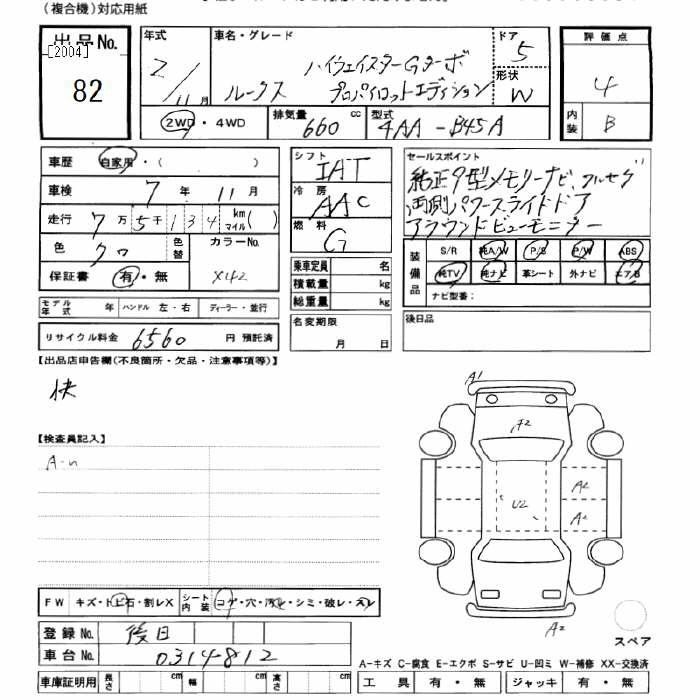 (複合機)対応用紙
出品No. [2004] 82
年式 2/11月
車名・グレード ルークス ハイウェイスターGターボ プロパイロットエディション
ドア 5
形状 W
2WD・4WD
排気量 660 cc
型式 4AA-B45A
評価点 4
内装 B
車歴 自家用・( )
車検 7年 11月
走行 7万5千134 km マイル( )
色 クロ 色替
カラーNo. X42
保証書 有・無
モデル年式 年 ハンドル 左・右 ディーラー・並行
リサイクル料金 6560 円 預託済
シフト IAT
冷房 AAC
燃料 G
乗車定員 名
積載量 kg
総重量 kg
名変期限 月 日
セールスポイント
純正9型メモリーナビ、フルセグ
両側パワースライドドア
アラウンドビューモニター
装備品 S/R 純A/W P/S P/W ABS
純TV 純ナビ 革シート 外ナビ エアB
ナビ型番:
後日品
【出品店申告欄(不良箇所・欠品・注意事項等)】
【検査員記入】
A-n
A1
A2
U2
A2
A2
A2
FW キズ・トビ石・割レX シート内装 コゲ・穴・汚レ・シミ・破レ・スレ
登録No. 後日
車台No. 0314812
スペア
A-キズ C-腐食 E-エクボ S-サビ U-凹ミ W-補修 XX-交換済
車庫証明用 長さ cm 幅 cm 高さ cm
工具 有・無 ジャッキ 有・無